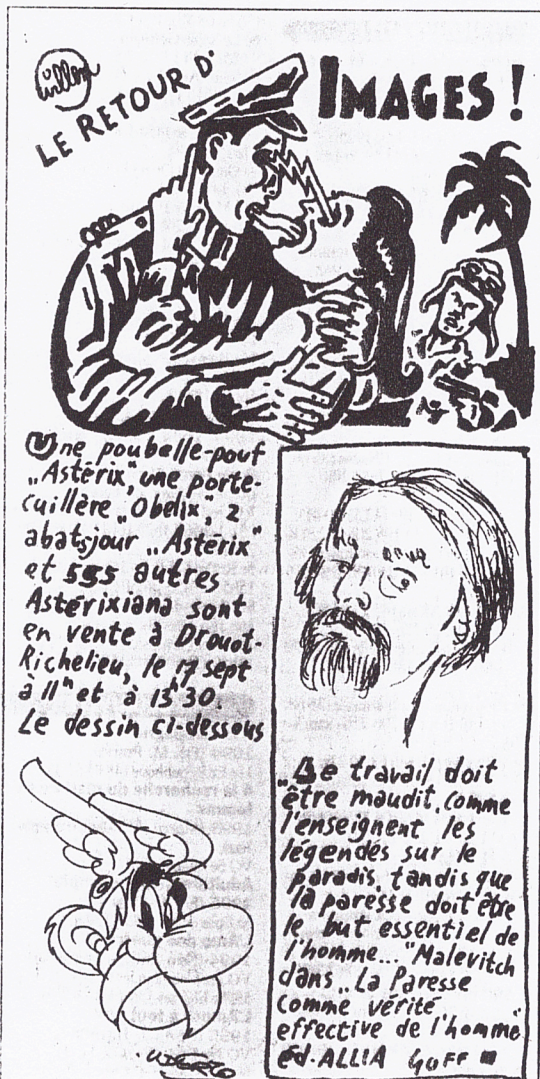 Willem
LE RETOUR D'
IMAGES !
Une poubelle-pouf
„Astérix", une porte-
cuillère „Obelix", 2
abatsjour „Astérix"
et 535 autres
Astérixiana sont
en vente à Drouot-
Richelieu, le 17 sept
à 11h et à 13h30.
Le dessin ci-dessous
UDERZO
„Le travail doit
être maudit, comme
l'enseignent les
légendes sur le
paradis, tandis que
la paresse doit être
le but essentiel de
l'homme..." Malevitch
dans „La Paresse
comme vérité
effective de l'homme"
éd. ALLIA 40FF